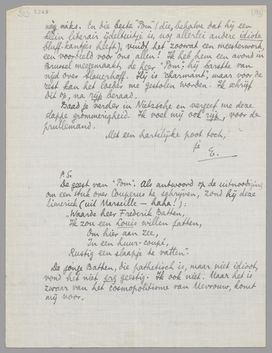 nog niks. En die beste "Pom" (die, behalve dat hij een
klein literair ijdeltuitje is, nog allerlei andere idiote
bluf-kantjes heeft), vindt het zoowat een meesterwerk,
een voorbeeld voor ons allen! Ik heb hem een avond in
Brussel meegemaakt, de heer "Pom"; hij barstte van
nijd over Slauerhoff. Hij is "charmant", maar voor de
rest kan het me gestolen worden. Ik schrijf
dit op, na rijp beraad.
Baad je verder in Nietzsche en vergeef me deze
slappe grommerigheid. Ik voel mij ook rijp, voor de
prullemand.
Met een hartelijke poot toch,
je
E.
P.S.
De geest van "Pom". Als antwoord op de uitnoodiging
om een stuk over Couperus te schrijven, zond hij deze
limerick (uit Marseille – haha!):
"Waarde heer Frederik Batten,
Ik zou een Louis willen patten,
Om hier aan zee,
In een huur-coupé,
Rustig een slaapje te vatten."
De jonge Batten, die pathetisch is, maar niet idioot,
vond het niet erg geestig. Ik ook niet. Maar het is
zwaar van het cosmopolitisme van Mevrouw, komt
mij voor.